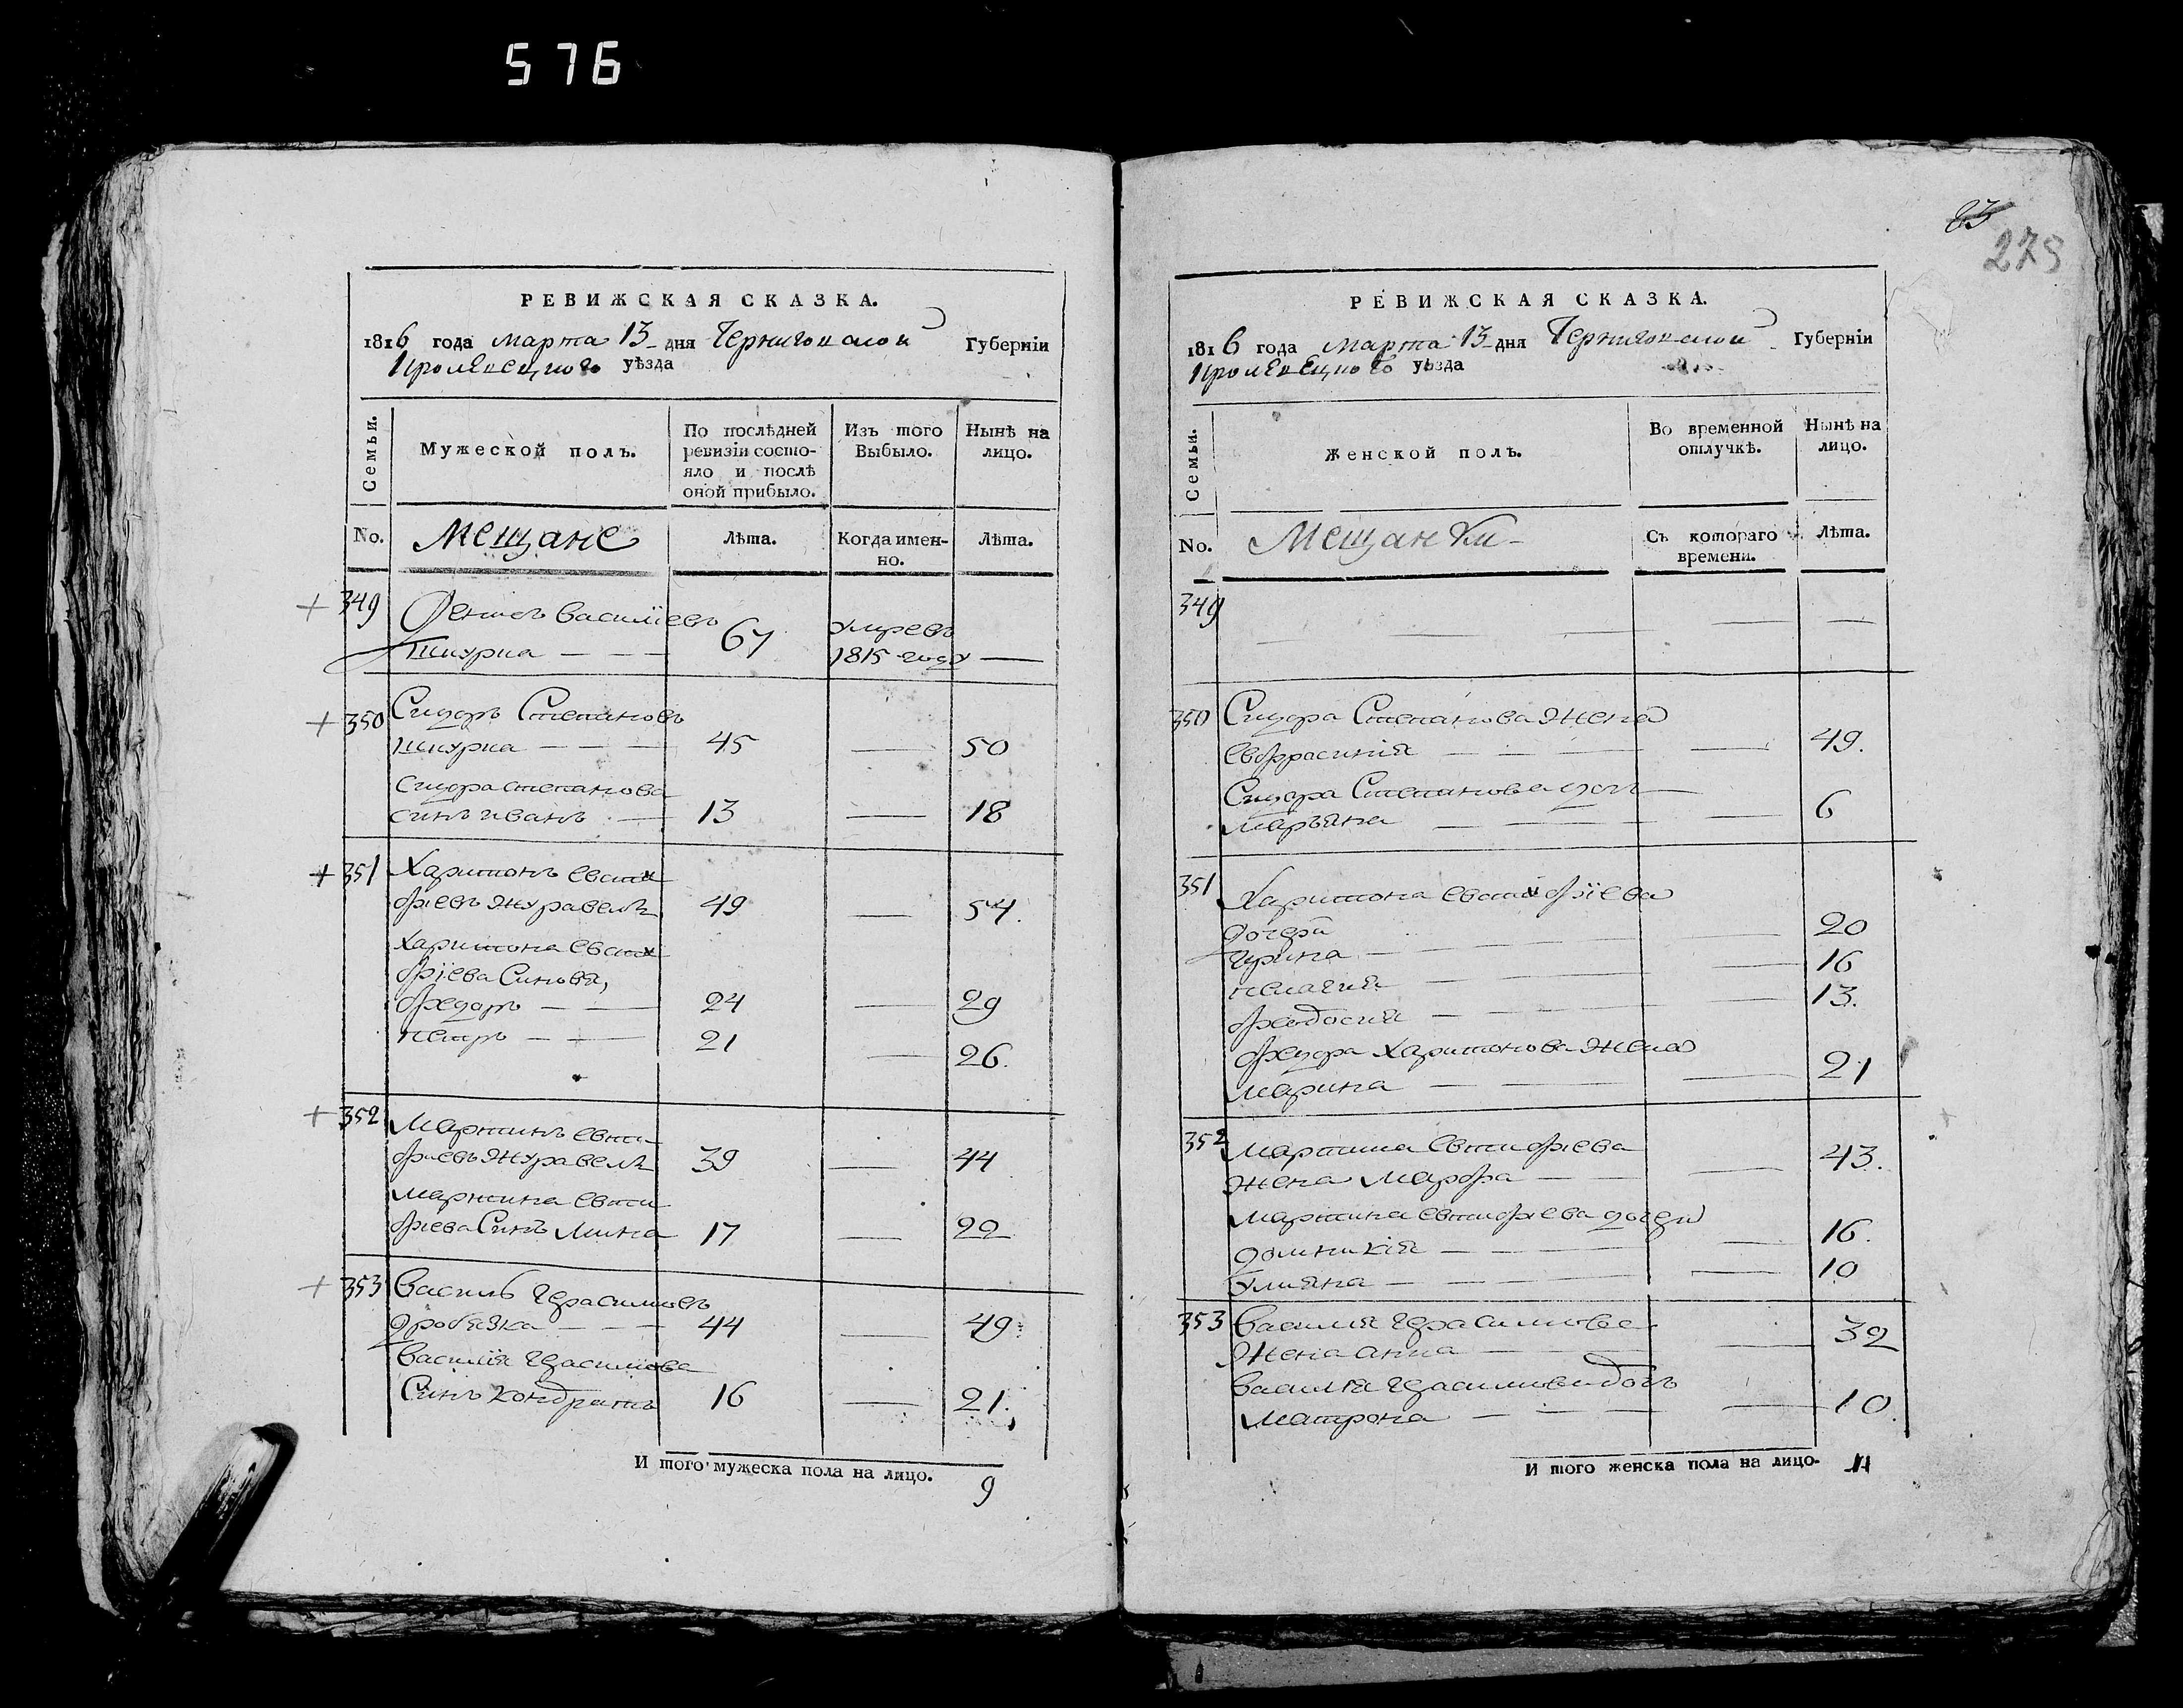 576
РЕВИЖСКАЯ СКАЗКА.
1816 года марта 13 дня Черниговской Губерніи
Кролевецкого уѣзда
Семьи.
Мужеской полъ.
По послѣдней ревизіи состо-
яло и послѣ
оной прибыло.
Изъ того
Выбыло.
Нынѣ на
лицо.
No.
Мещане
Лѣта.
Когда имен-
но.
Лѣта.
349 Василіевъ
Шкурка 67 умревъ
1815 году
350 Сидоръ Степановъ
Шкурка 45 50
Сидора Степанова
синъ иванъ 13 18
351 Харитонъ Евстах
фіевъ Журавель 49 54.
Харитона Евстах
фіева Синовя,
Федоръ 24 29
петръ 21 26.
352 Мартинъ Евти-
фіевъ Журавель 39 44
Мартина Евти
фіева Синъ Мина 17 22
353 Василь Герасимовъ
дробязка 44 49
Василія Герасимова
Синъ Кондратъ 16 21.
И того мужеска пола на лицо. 9
83
275
РЕВИЖСКАЯ СКАЗКА.
1816 года марта 13 дня Черниговской Губерніи
Кролевецкого уѣзда
Семьи.
Женской полъ.
Во временной
отлучкѣ.
Нынѣ на
лицо.
No.
Мещанки
Съ котораго
времени.
Лѣта.
349
350 Сидора Степанова Жена
Евфрасинія 49.
Сидора Степанова доч
маръяна 6
351 Харитона Евстафіева
дочери
Ирина 20
пелагия 16
федосия 13.
федора Харитонова Жена
марина 21
352 мартина Евтифіева
жена марфа 43.
мартина евтифіева дочери
домникія 16.
Улияна 10
353 Василия Герасимова
Жена анна 32
Василія Герасимова дочъ
матрона 10.
И того женска пола на лицо. 11